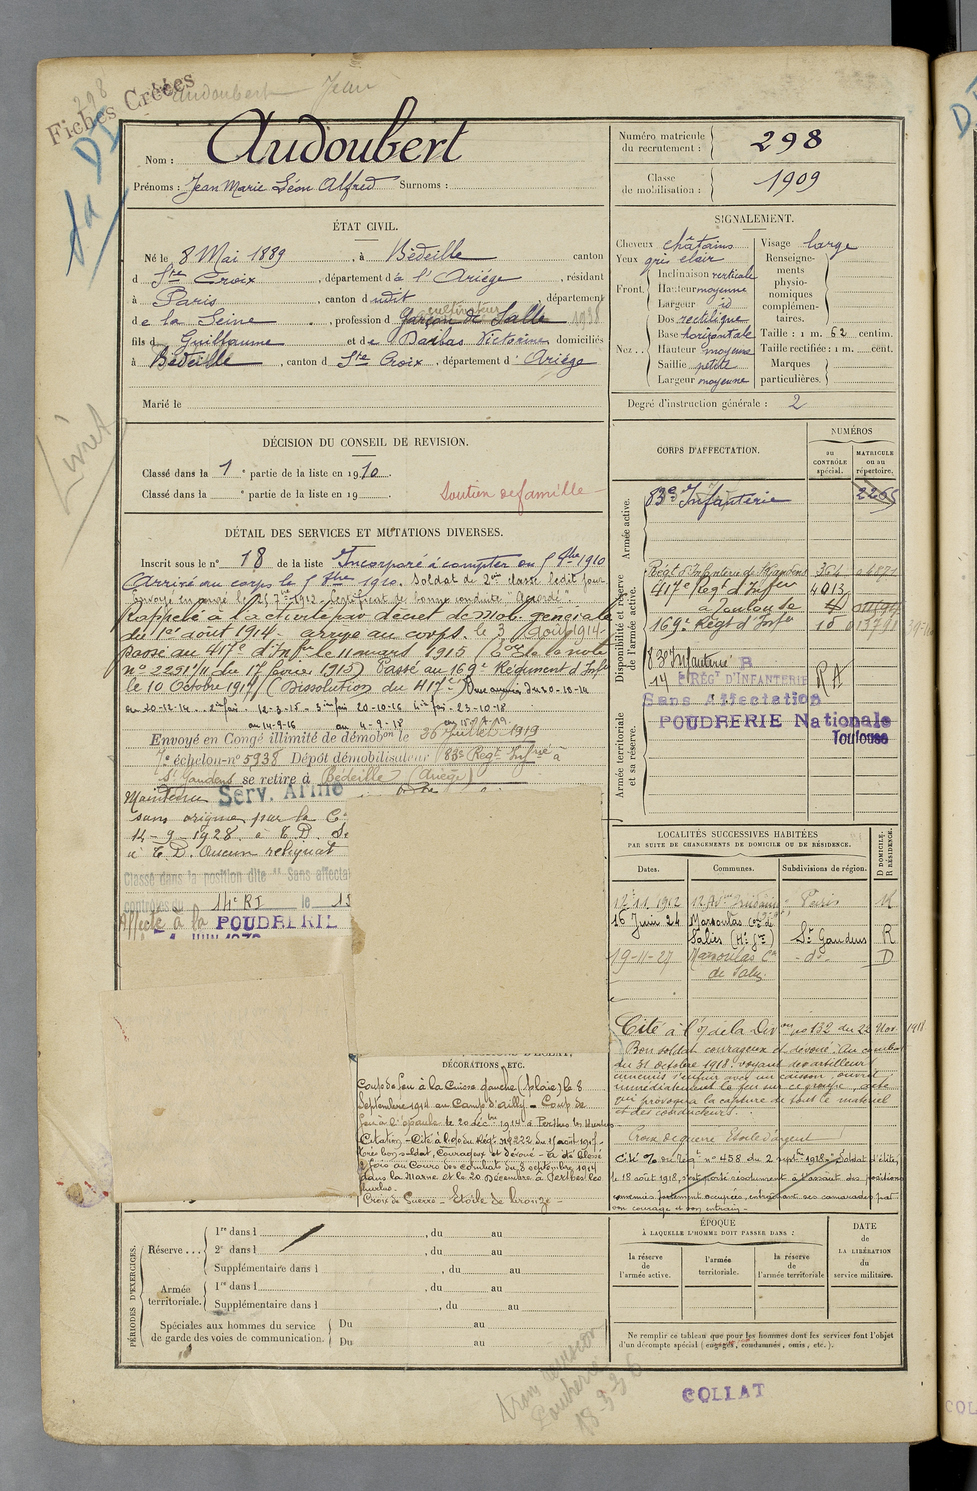 Audoubert Jean
298
Fiches Créées
Nom : Audoubert
Prénoms : Jean Marie Léon Alfred Surnoms :
Numéro matricule du recrutement : 298
Classe de mobilisation : 1909
ÉTAT CIVIL.
Né le 8 Mai 1889, à Bédeille canton
d Ste Croix, département d e l'Ariège, résidant
à Paris, canton d udit département
d e la Seine, profession d Garçon de Salle cultivateur 1938
fils d Guillaume et d e Barbas Victorine domiciliés
à Bédeille, canton d Ste Croix, département d' Ariège
Marié le
SIGNALEMENT.
Cheveux châtains
Yeux gris clair
Front. Inclinaison verticale
Hauteur moyenne
Largeur id
Nez. Dos rectiligne
Base horizontale
Hauteur moyenne
Saillie petite
Largeur moyenne
Visage large
Renseignements physionomiques complémentaires.
Taille : 1 m. 62 centim.
Taille rectifiée : 1 m. cent.
Marques particulières.
Degré d'instruction générale : 2
Livret
DÉCISION DU CONSEIL DE REVISION.
Classé dans la 1e partie de la liste en 1910.
Classé dans la e partie de la liste en 19
Soutien de famille
DÉTAIL DES SERVICES ET MUTATIONS DIVERSES.
Inscrit sous le n° 18 de la liste Incorporé à compter du 5 8bre 1910
Arrivé au corps le 5 8bre 1910. Soldat de 2me classe ledit jour
Envoyé en congé le 25 7bre 1912. Certificat de bonne conduite "Accordé".
Rappelé à l'activité par décret de Mob. générale
du 1er août 1914. arrivé au corps le 3 août 1914.
passé au 417e d'Infie le 11 mars 1915
du 17 février 1915) Passé au 169e Régiment d'Infie
le 10 Octobre 1917 (Dissolution du 417e)
Envoyé en Congé illimité de démobon le 1919
7e échelon n° 5938 Dépôt démobilisateur 83e Régt Infrie à
St Gaudens se retire à Bédeille (Ariège)
Maintenu Serv. Armé
sans origine par la C
14-9-1928. à T D. Se
à T D. Aucun reliquat
Classé dans la position dite " Sans affecta
contrôles du 14e RI le 15
Affecté à la POUDRERIE
CORPS D'AFFECTATION.
NUMÉROS
au CONTRÔLE spécial.
MATRICULE ou au répertoire.
Armée active.
83e Infanterie
Disponibilité et réserve de l'armée active.
Régt d'Infanterie de St Gaudens
417e Régt d'Infrie
à Toulouse
169e Régt d'Infie
83e Infanterie
14 E RÉGt D'INFANTERIE RA
Armée territoriale et sa réserve.
Sans Affectation
POUDRERIE Nationale
Toulouse
LOCALITÉS SUCCESSIVES HABITÉES
PAR SUITE DE CHANGEMENTS DE DOMICILE OU DE RÉSIDENCE.
Dates. Communes. Subdivisions de région. D DOMICILE. R RÉSIDENCE.
16 Juin 24 Marsoulas Con de Salies (Hte Gne) St Gaudens R
19-11-27 Marsoulas Con de Salies - do - D
Cité à l'O/ de la Divon no 132 du 22 Nov 1918
Bon soldat courageux et dévoué. Au combat
du 31 octobre 1918. voyant des artilleurs
ennemis s'enfuir avec un caisson, ouvrit
immédiatement le feu sur ce groupe,
qui provoqua la capture de tout le matériel
et des conducteurs.
Croix de guerre Etoile d'argent
Cité O/ du Régt n° 458 du 2 septre 1918. Soldat d'élite,
le 18 août 1918, s'est porté résolument à l'assaut des positions
ennemies fortement occupées, entraînant ses camarades par
son courage et son entrain.
DÉCORATIONS, ETC.
Coup de feu à la Cuisse gauche (plaie) le 8
Septembre 1914 au Camp d'ailly - Coup de
feu à l'épaule le 20 décbre 1914 à Perthes les Hurlus
Citation - Cité à l'O/ du Régt n° 222 du 15 août 1917.
très bon soldat, Courageux et dévoué - a été blessé
2 fois au Cours des combats du 8 septembre 1914
dans la Marne et le 20 Décembre à Perthes les
Hurlus.
Croix de Guerre - Etoile de bronze -
PÉRIODES D'EXERCICES.
Réserve... 1re dans l , du au
2e dans l , du au
Supplémentaire dans l , du au
Armée territoriale. 1re dans l , du au
Supplémentaire dans l , du au
Spéciales aux hommes du service de garde des voies de communication. Du au
Du au
ÉPOQUE
À LAQUELLE L'HOMME DOIT PASSER DANS :
la réserve de l'armée active.
l'armée territoriale.
la réserve de l'armée territoriale
DATE DE LA LIBÉRATION du service militaire.
Ne remplir ce tableau que pour les hommes dont les services font l'objet
d'un décompte spécial (engagés, condamnés, omis, etc.).
COLLAT